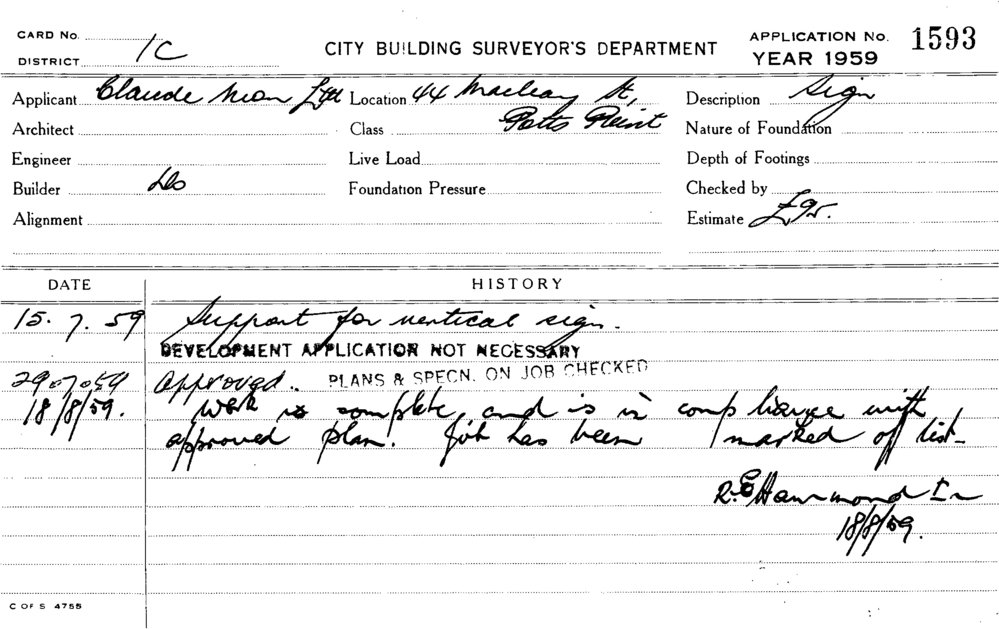 CARD No. CITY BUILDING SURVEYOR'S DEPARTMENT APPLICATION No. 1593
DISTRICT 1C YEAR 1959
Applicant Claude Neon Ltd Location 44 Macleay St, Potts Point Description Sign
Architect Class Nature of Foundation
Engineer Live Load Depth of Footings
Builder Do Foundation Pressure Checked by
Alignment Estimate £95.
DATE HISTORY
15.7.59 Support for vertical sign.
DEVELOPMENT APPLICATION NOT NECESSARY
29.7.59 Approved. PLANS & SPECN. ON JOB CHECKED
18/8/59. Work is complete, and is in compliance with
approved plan. Job has been marked of list.
R. E Hammond
18/8/59.
C OF S 4755